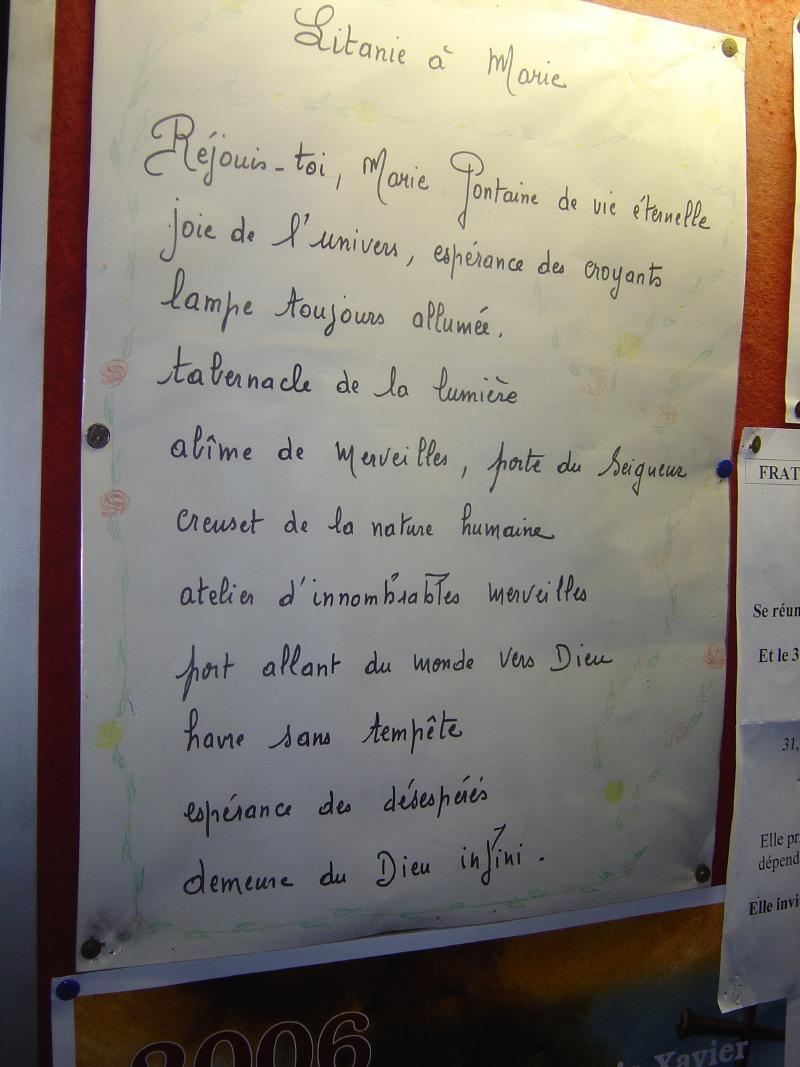 Litanie à Marie
Réjouis-toi, Marie Fontaine de vie éternelle
joie de l'univers, espérance des croyants
lampe toujours allumée.
tabernacle de la lumière
abîme de merveilles, porte du Seigneur
creuset de la nature humaine
atelier d'innombrables merveilles
port allant du monde vers Dieu
havre sans tempête
espérance des désespérés
demeure du Dieu infini.
FRAT
Se réun
Et le 3
31,
Elle pr
dépend
Elle invi
2006
Xavier